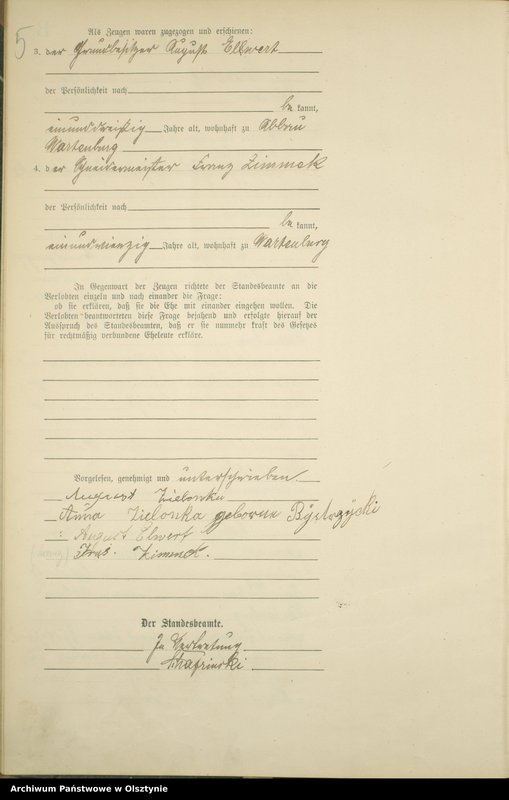 5
Als Zeugen waren zugezogen und erschienen:
3. der Grundbesitzer August Ellwert
der Persönlichkeit nach
be kannt,
einunddreißig Jahre alt, wohnhaft zu Abbau
Wartenburg
4. der Schneidermeister Franz Zimmek
der Persönlichkeit nach
be kannt,
einundvierzig Jahre alt, wohnhaft zu Wartenburg
In Gegenwart der Zeugen richtete der Standesbeamte an die
Verlobten einzeln und nach einander die Frage:
ob sie erklären, daß sie die Ehe mit einander eingehen wollen. Die
Verlobten beantworteten diese Frage bejahend und erfolgte hierauf der
Ausspruch des Standesbeamten, daß er sie nunmehr kraft des Gesetzes
für rechtmäßig verbundene Eheleute erkläre.
Vorgelesen, genehmigt und unterschrieben
August Zielonka
Anna Zielonka geborne Bystrzycki
August Elwert
Franz Zimmek.
Der Standesbeamte.
In Vertretung
Archiwum Państwowe w Olsztynie